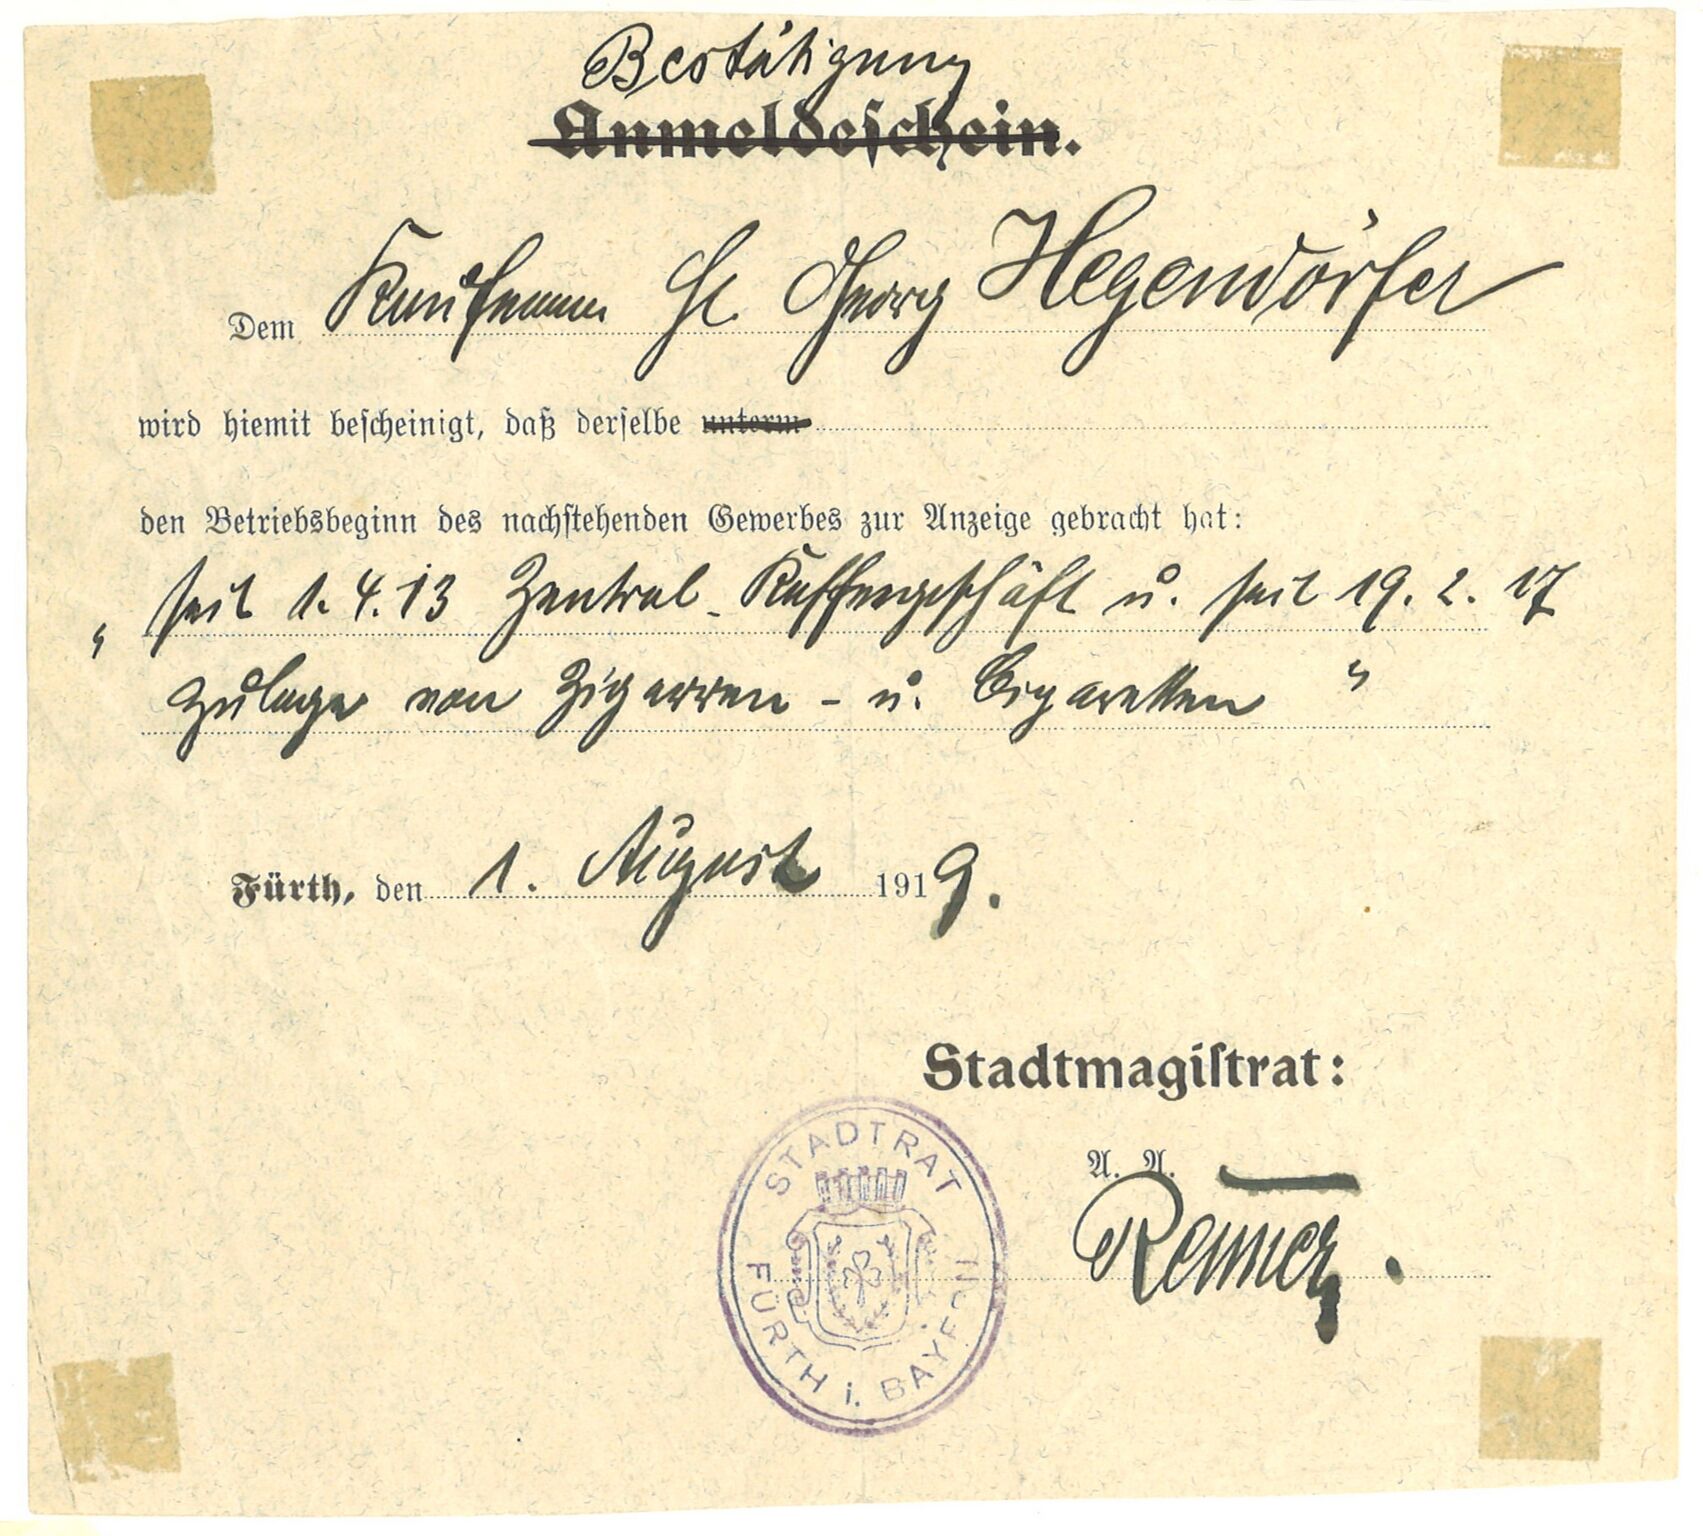 Bestätigung
Anmeldeschein.
Dem Kaufmann H. Georg Hegendörfer
wird hiemit bescheinigt, daß derselbe unterm
den Betriebsbeginn des nachstehenden Gewerbes zur Anzeige gebracht hat:
„ seit 1. 4. 13 Zentral-Kaffeegeschäft u. seit 19. 2. 17
Zulage von Zigarren- u. Cigaretten "
Fürth, den 1. August 1919.
Stadtmagistrat:
A. A.
Renner.
STADTRAT
FÜRTH i. BAYERN